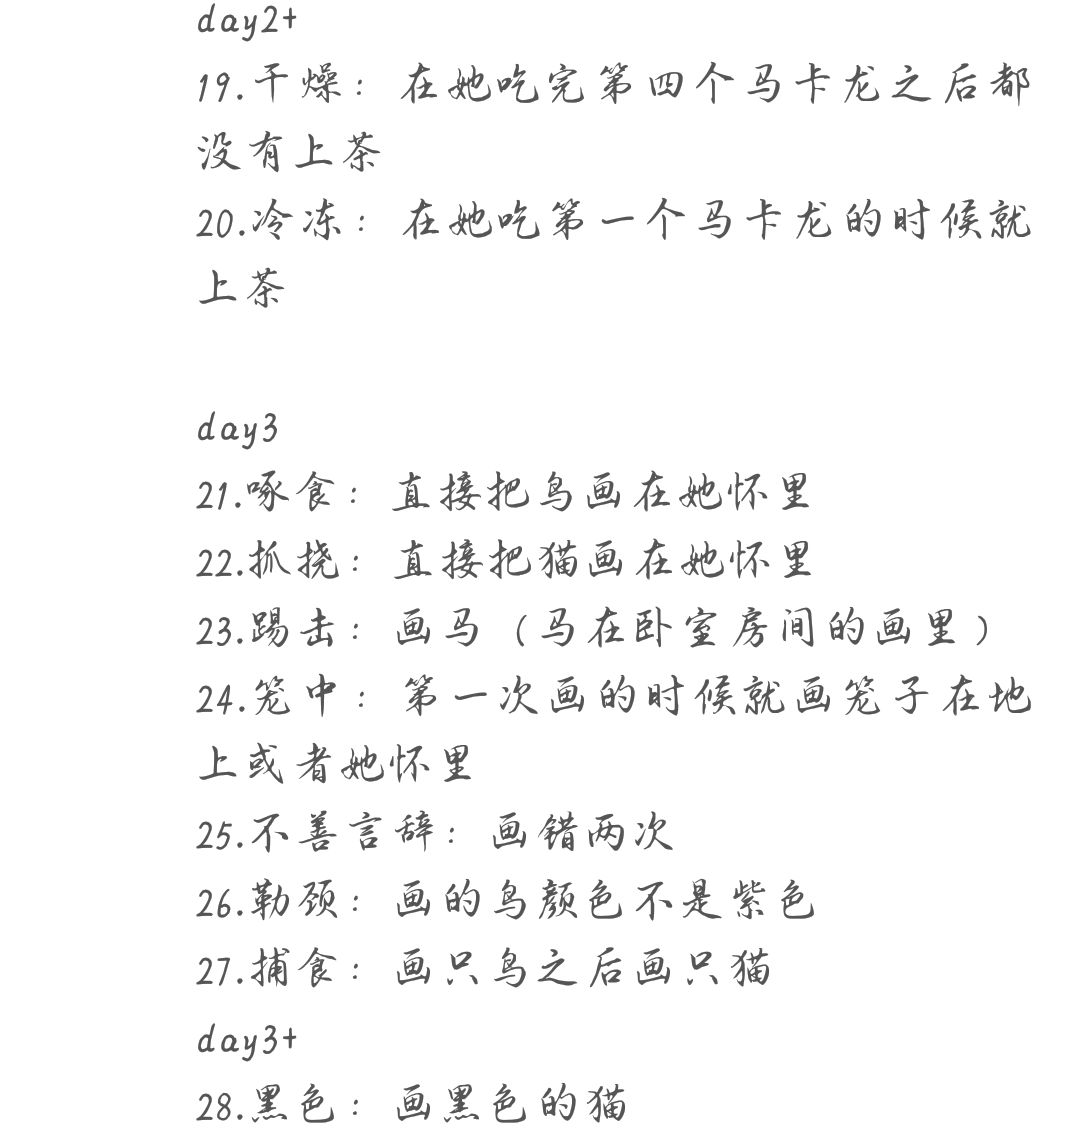 day2+
19.干燥：在她吃完第四个马卡龙之后都
没有上茶
20.冷冻：在她吃第一个马卡龙的时候就
上茶
day3
21.啄食：直接把鸟画在她怀里
22.抓挠：直接把猫画在她怀里
23.踢击：画马（马在卧室房间的画里）
24.笼中：第一次画的时候就画笼子在地
上或者她怀里
25.不善言辞：画错两次
26.勒颈：画的鸟颜色不是紫色
27.捕食：画只鸟之后画只猫
day3+
28.黑色：画黑色的猫